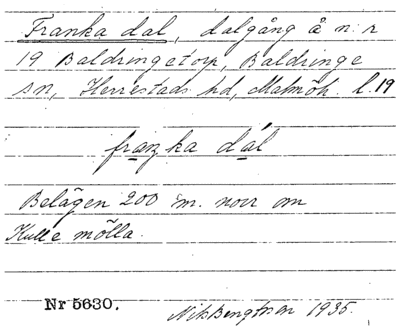 Franka dal, dalgång å n:r
19 Baldringetorp, Baldringe
sn, Herrestads hd, Malmöh. l. 19
fraŋka dál
Belägen 200 m. norr om
Kulle mölla.
Nr 5630. Nils Bengtsson 1935.